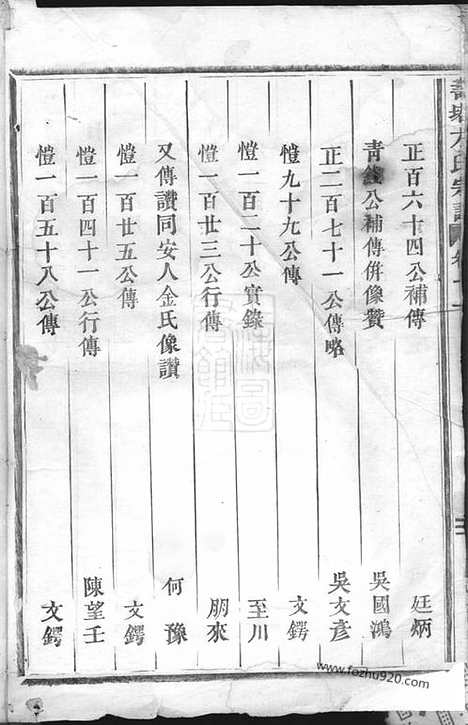 正百六十四公補傳 廷炳
青錢公補傳併像贊 吳國鴻
正二百七十一公傳略 吳文彥
愷九十九公傳 文鍔
愷一百二十公實錄 至川
愷一百廿三公行傳 朋來
又傳讚同安人金氏像讚 何豫
愷一百廿五公傳 文鍔
愷一百四十一公行傳 陳望壬
愷一百五十八公傳 文鍔
www.fozhu920.com